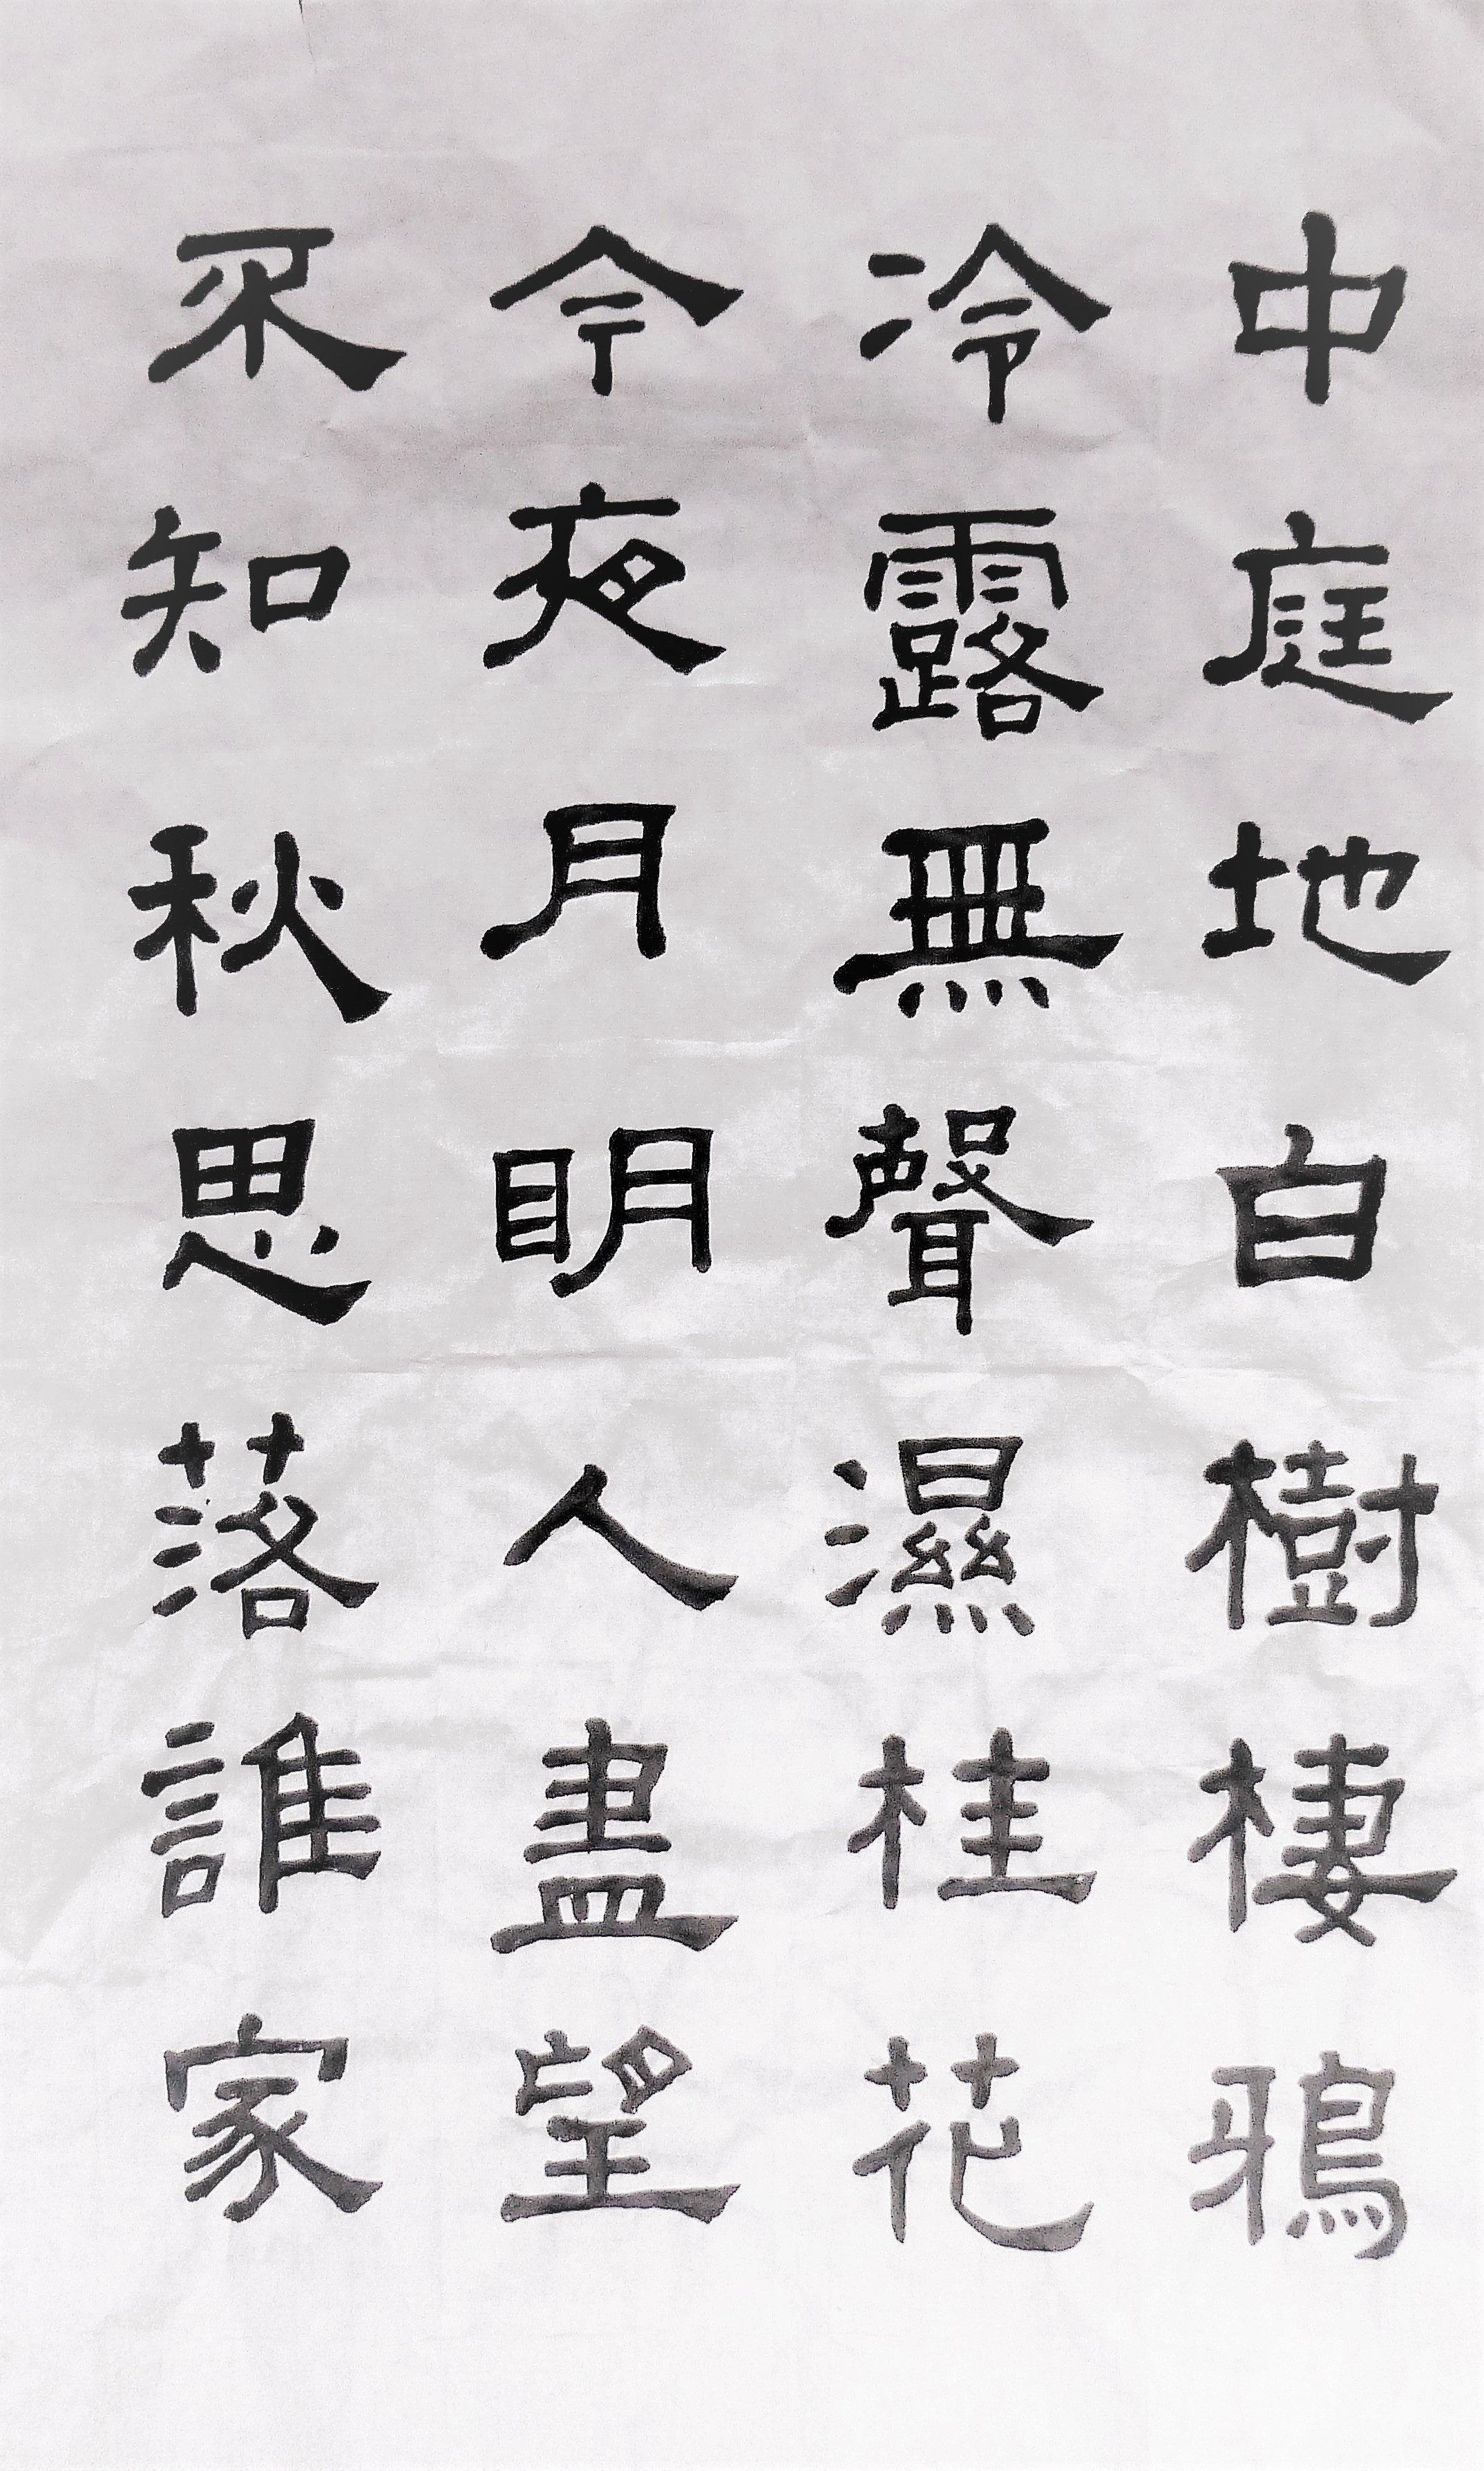 中庭地白樹棲鴉
冷露無聲濕桂花
今夜月明人盡望
不知秋思落誰家